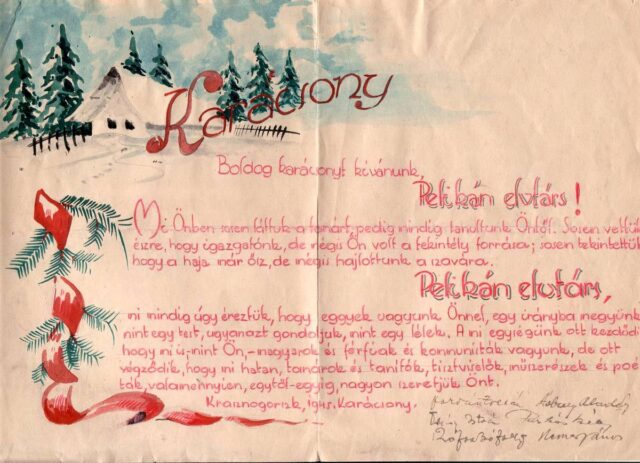 Karácsony
Boldog karácsonyt kívánunk,
Pelikán elvtárs!
Mi Önben sosem láttuk a tanárt, pedig mindig tanultunk Öntől. Sosem vettük
észre, hogy igazgatónk, de mégis Ön volt a tekintély forrása; sosem tekintettük
hogy a haja már ősz, de mégis hajlottunk a szavára.
Pelikán elvtárs,
mi mindig úgy éreztük, hogy eggyek vagyunk Önnel, egy irányba megyünk
mint egy test, ugyanazt gondoljuk, mint egy lélek. A mi egységünk ott kezdődi
hogy mi is-mint Ön,-magyarok és férfiak és kommunisták vagyunk, de ott
végződik, hogy mi hatan, tanárok és tanítók, tisztviselők, műszerészek és poé-
ták, valamennyien, egytől-egyig, nagyon szeretjük Önt.
Krasznogorszk, 1945. Karácsony.